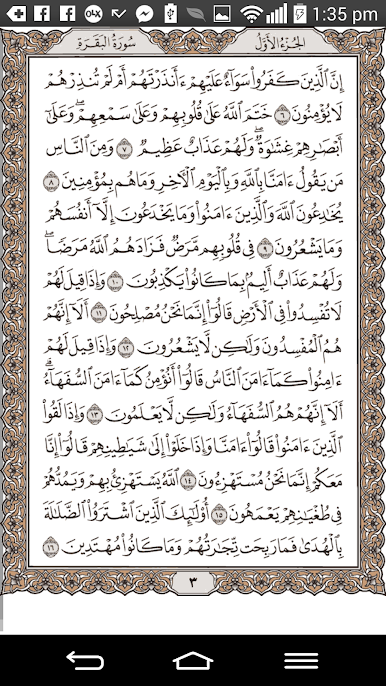 1:35 pm
سُورَةُ البَقَرَةِ
الجُزءُ الأَوَّلُ
إِنَّ ٱلَّذِينَ كَفَرُوا۟ سَوَآءٌ عَلَيْهِمْ ءَأَنذَرْتَهُمْ أَمْ لَمْ تُنذِرْهُمْ
لَا يُؤْمِنُونَ ٦ خَتَمَ ٱللَّهُ عَلَىٰ قُلُوبِهِمْ وَعَلَىٰ سَمْعِهِمْ ۖ وَعَلَىٰٓ
أَبْصَٰرِهِمْ غِشَٰوَةٌ ۖ وَلَهُمْ عَذَابٌ عَظِيمٌ ٧ وَمِنَ ٱلنَّاسِ
مَن يَقُولُ ءَامَنَّا بِٱللَّهِ وَبِٱلْيَوْمِ ٱلْـَٔاخِرِ وَمَا هُم بِمُؤْمِنِينَ ٨
يُخَٰدِعُونَ ٱللَّهَ وَٱلَّذِينَ ءَامَنُوا۟ وَمَا يَخْدَعُونَ إِلَّآ أَنفُسَهُمْ
وَمَا يَشْعُرُونَ ٩ فِى قُلُوبِهِم مَّرَضٌ فَزَادَهُمُ ٱللَّهُ مَرَضًا ۖ
وَلَهُمْ عَذَابٌ أَلِيمٌۢ بِمَا كَانُوا۟ يَكْذِبُونَ ١٠ وَإِذَا قِيلَ لَهُمْ
لَا تُفْسِدُوا۟ فِى ٱلْأَرْضِ قَالُوٓا۟ إِنَّمَا نَحْنُ مُصْلِحُونَ ١١ أَلَآ إِنَّهُمْ
هُمُ ٱلْمُفْسِدُونَ وَلَٰكِن لَّا يَشْعُرُونَ ١٢ وَإِذَا قِيلَ لَهُمْ
ءَامِنُوا۟ كَمَآ ءَامَنَ ٱلنَّاسُ قَالُوٓا۟ أَنُؤْمِنُ كَمَآ ءَامَنَ ٱلسُّفَهَآءُ ۗ
أَلَآ إِنَّهُمْ هُمُ ٱلسُّفَهَآءُ وَلَٰكِن لَّا يَعْلَمُونَ ١٣ وَإِذَا لَقُوا۟
ٱلَّذِينَ ءَامَنُوا۟ قَالُوٓا۟ ءَامَنَّا وَإِذَا خَلَوْا۟ إِلَىٰ شَيَٰطِينِهِمْ قَالُوٓا۟ إِنَّا
مَعَكُمْ إِنَّمَا نَحْنُ مُسْتَهْزِءُونَ ١٤ ٱللَّهُ يَسْتَهْزِئُ بِهِمْ وَيَمُدُّهُمْ
فِى طُغْيَٰنِهِمْ يَعْمَهُونَ ١٥ أُو۟لَٰٓئِكَ ٱلَّذِينَ ٱشْتَرَوُا۟ ٱلضَّلَٰلَةَ
بِٱلْهُدَىٰ فَمَا رَبِحَت تِّجَٰرَتُهُمْ وَمَا كَانُوا۟ مُهْتَدِينَ ١٦
٣